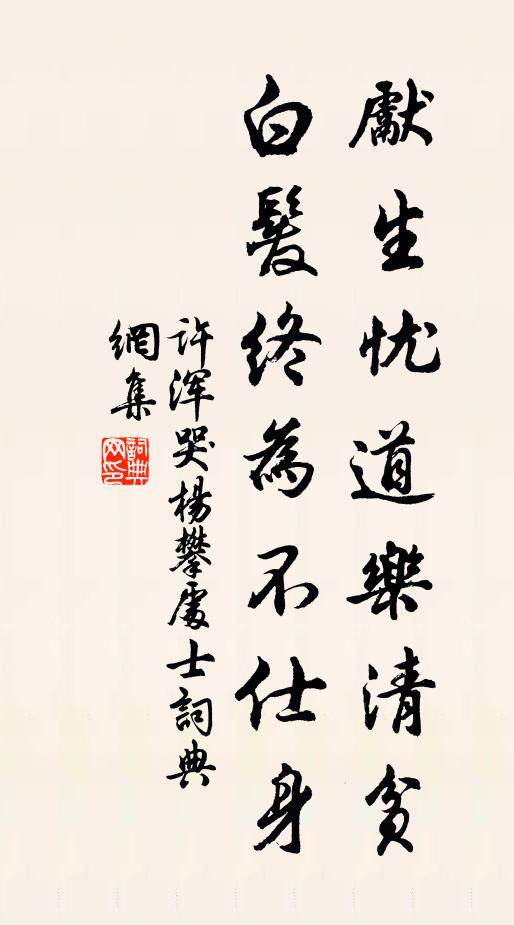 獻生忧道樂清貧
白髮終為不仕身
许浑哭楊攀處士詞典
網集
詞典
网印